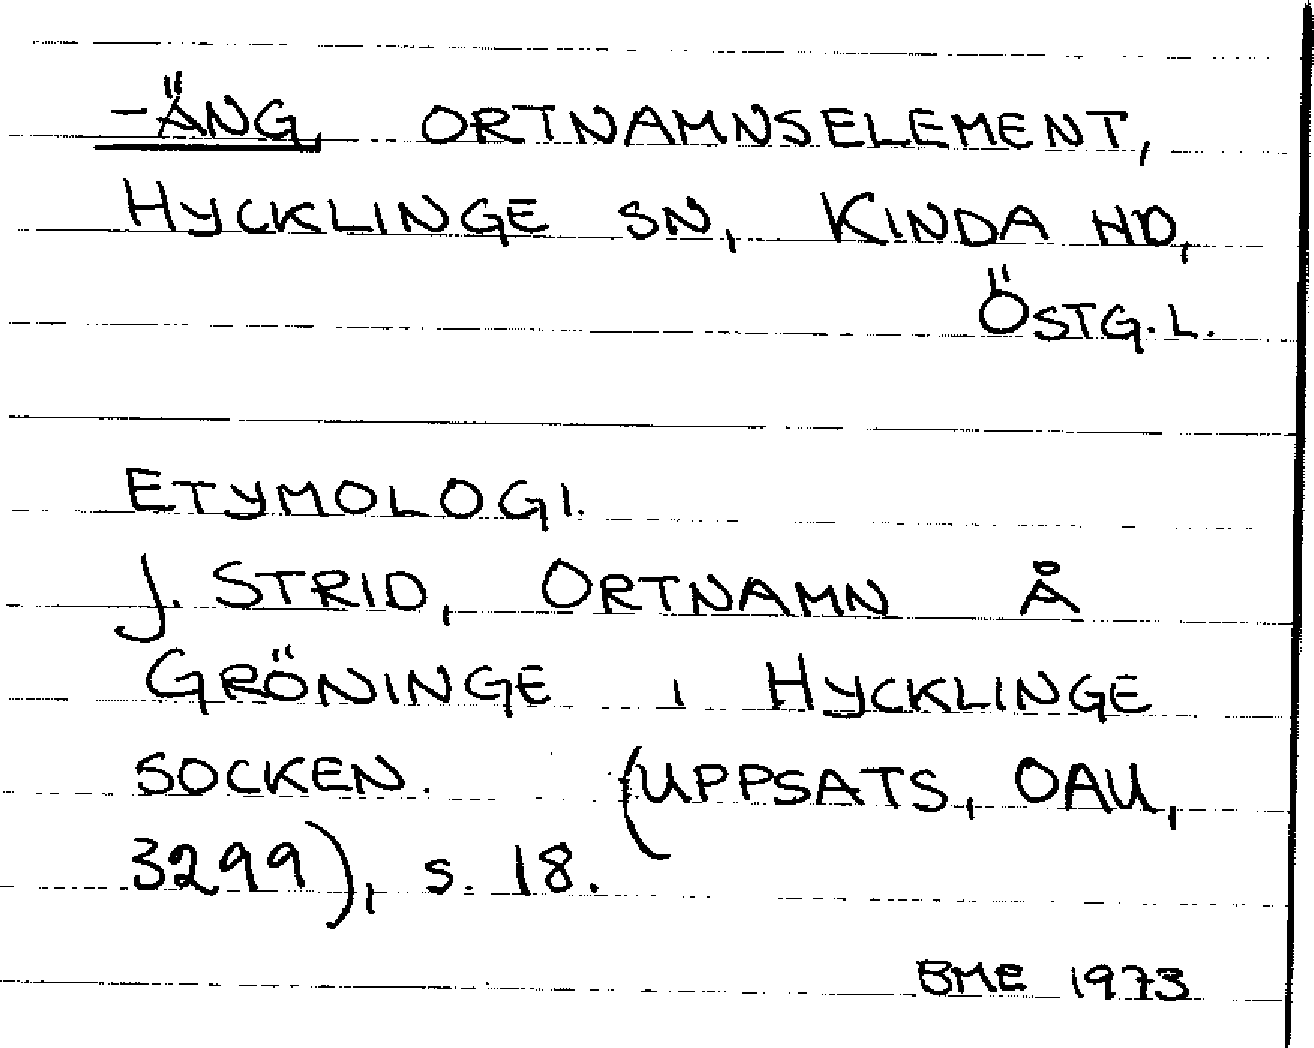 -ÄNG, ORTNAMNSELEMENT,
HYCKLINGE SN, KINDA HD,
ÖSTG.L.
ETYMOLOGI.
J. STRID, ORTNAMN Å
GRÖNINGE I HYCKLINGE
SOCKEN. (UPPSATS, OAU,
3299), s. 18.
BME 1973